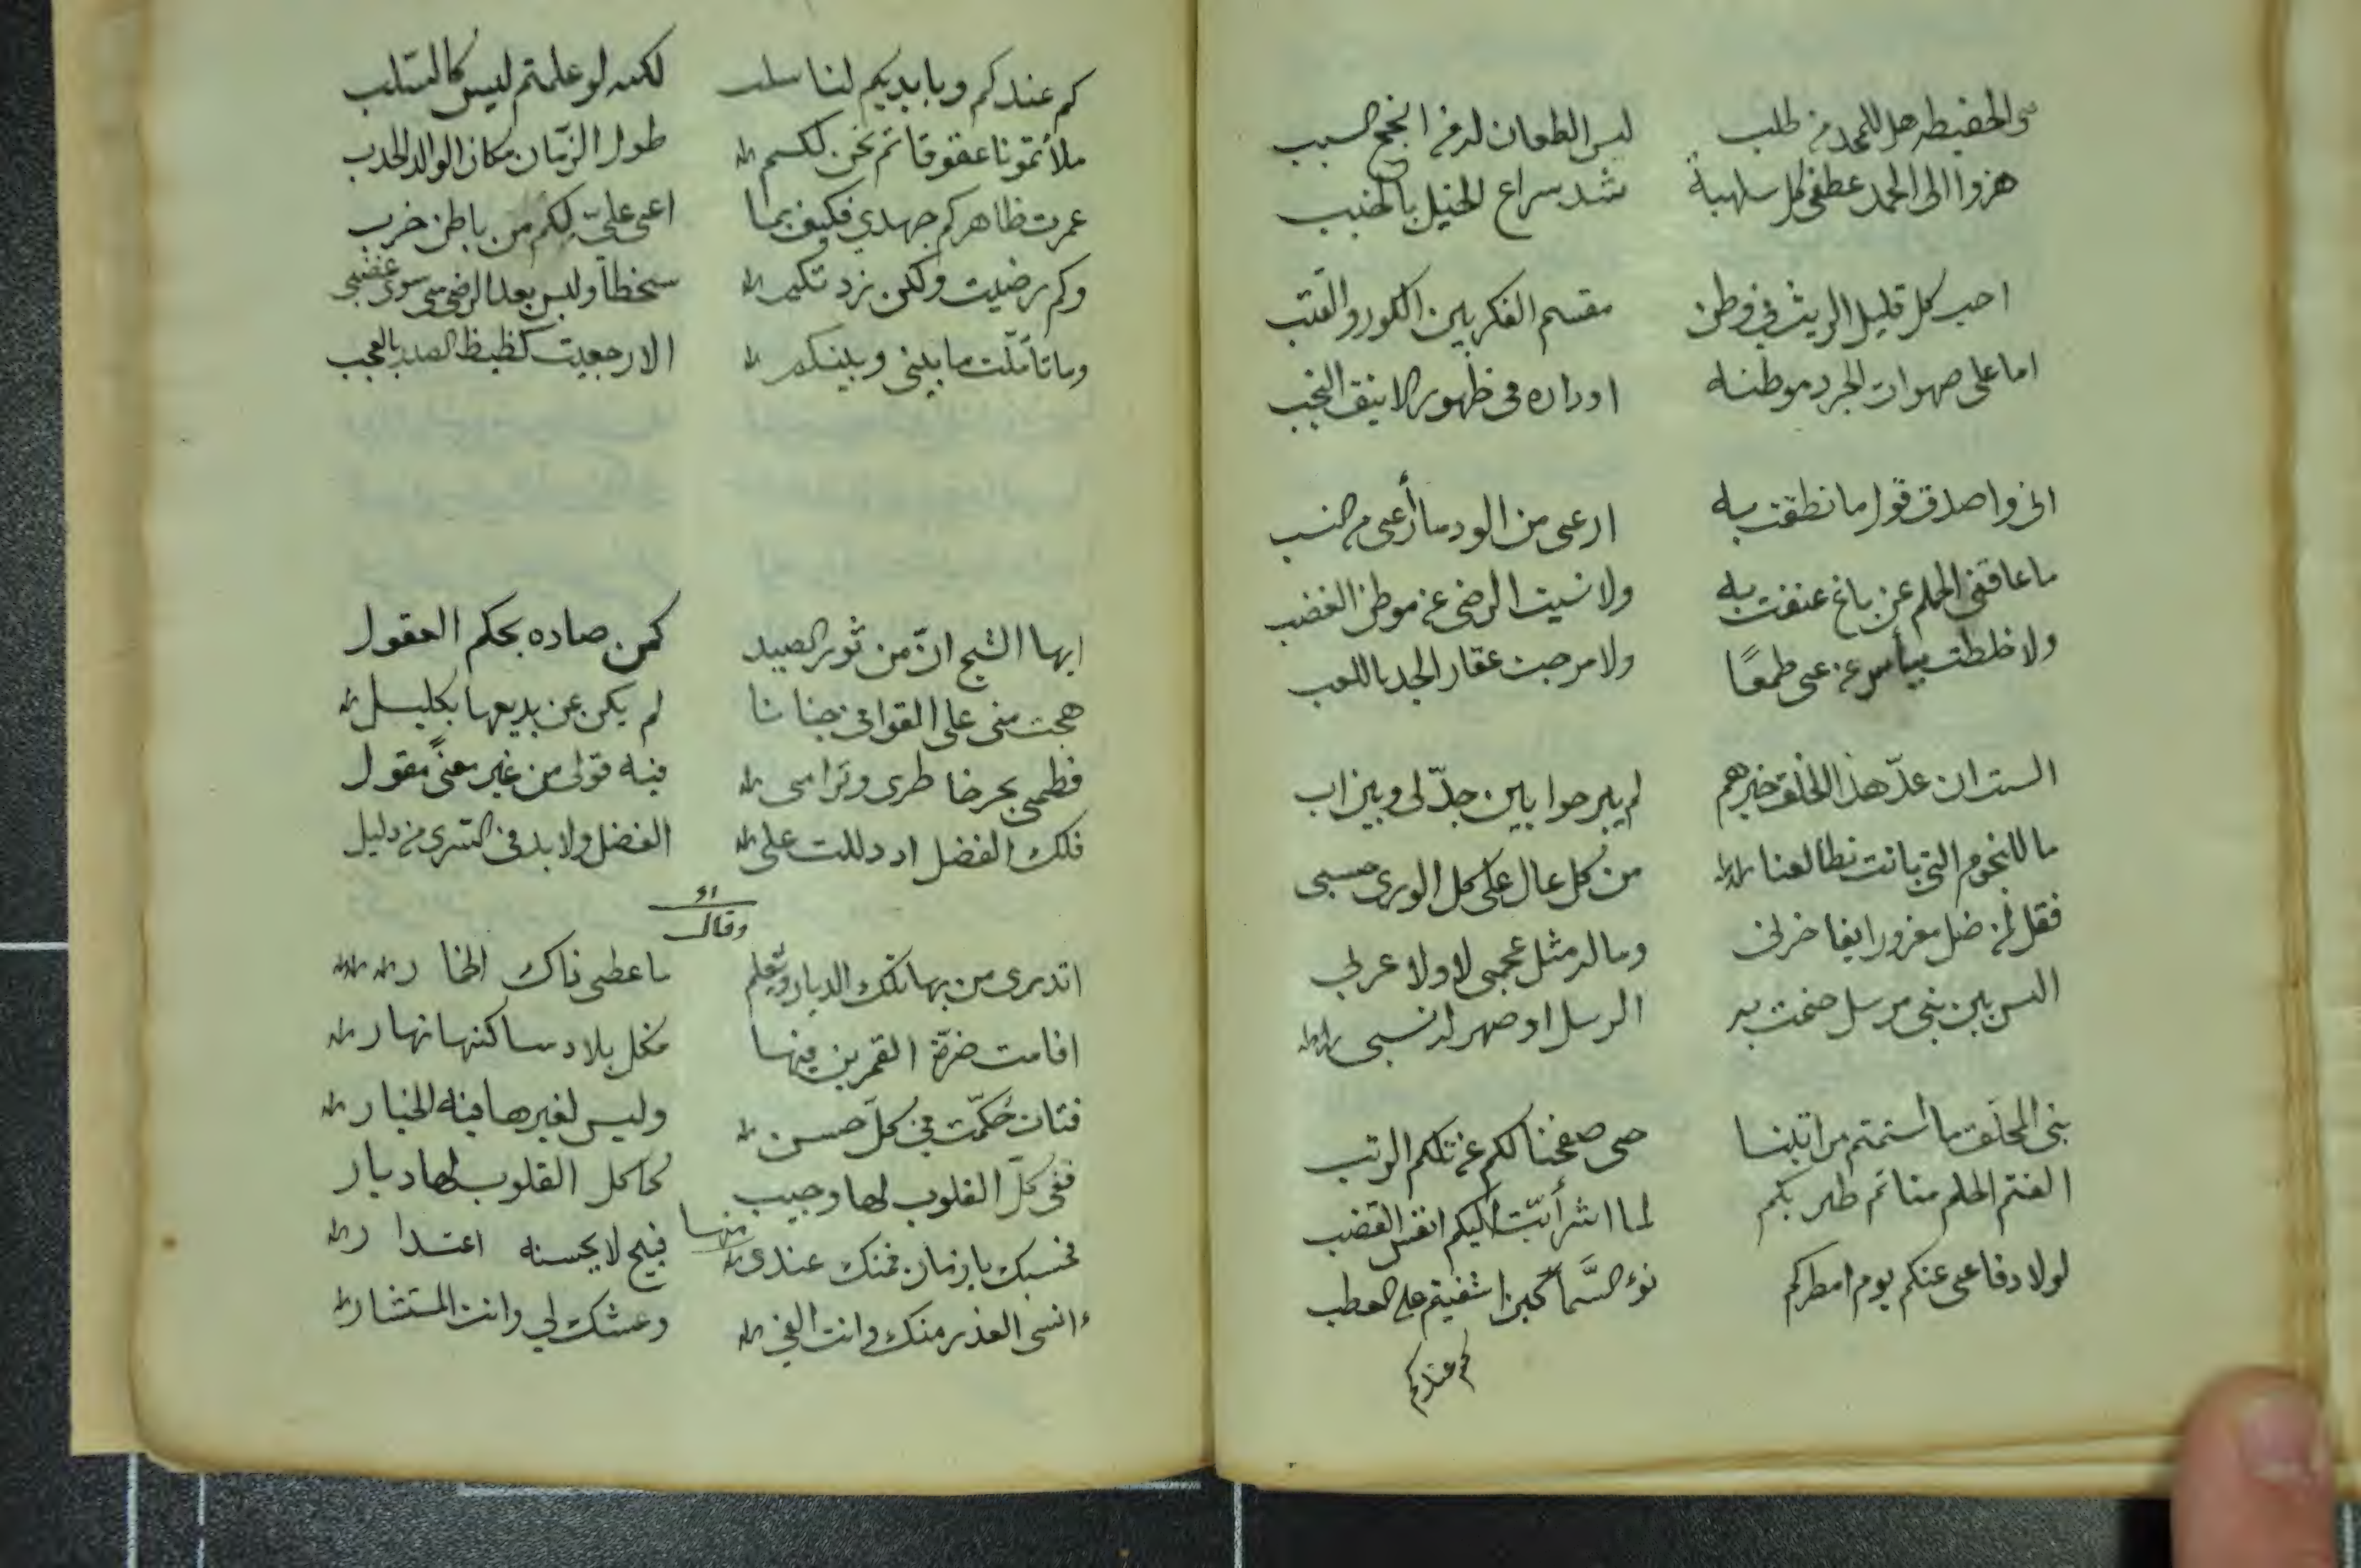 الحفيظه هل للمجد من طلب ليس الطعان له في النجح بسبب
هزوا الى الحمد عطفى كل سلهبة شد سراع الخيل بالخبب
احب كل قليل الريث في وطن مقسم الفكر بين الكور والقتب
اما على صهوات الجرد موطنه او داره في ظهور الاينق النجب
انى واصدق قول ما نطقت به ارعى من الود ما أرعى من النسب
ما عاقنى الحلم عن باغ عنفت به ولا نسيت الرضى عن موطن الغضب
ولا خلطت بيأس عن طمعًا ولا مرجت عقار الجد باللعب
الست ان عدّ هذا الخلق خيرهم لم يبرحوا بين جدّ لى وبين اب
ما للنجوم التى باتت تطالعنا من كل عال على كل الورى حسبى
فقل لمن ضل مغرورا يفاخرنى وما له مثل عجمى لا ولا عربي
اليس بين بنى مرسل صحت به الرسل او صهر له نسبى
بنى المحلق ما استمتم مراتبنا حى صفحنا لكم عن تلكم الرتب
الفتم الحلم منا ثم طار بكم لما اشرأبّت اليكم انفس القضب
لولا دفاعى عنكم يوم امطركم نوء السَّما حين اشفيتم على العطب
كم عندكم
كم عندكم وبايديكم لنا سلب لكنه لو علمتم ليس كالسلب
ملأتمونا عقوقا ثم نحن لكم طول الزّمان مكان الوالد الحدب
عمرت ظاهركم جهدي فكيف بما اعى عليّ لكم من باطن خرب
وكم رضيت ولكن زدتكم سخطا وليس بعد الرضى سوى غضبى
وما تأمّلت ما بينى وبينكم الا رجعت كظيظ الصدر بالعجب
ايها الشيخ انّ من ثور الصيد كمن صاده بحكم العقول
هجت منى على القوافى جنانا لم يكن عن بديعها بكليل
فطمى بحر خاطرى وترامى فيه قولى من غير معنًى مقول
فلك الفضل اد دللت على الفضل ولا بد فى السرى من دليل
وقال
اتدرى من بها تلك الديار وتعلم ما عطى ذاك الخمار
اقامت ضرّة القمرين فيها فكل بلاد ساكنها نهار
فتات حُكّمت في كلّ حسن وليس لغيرها فيه الخيار
ففى كلّ القلوب لها وجيب كما كل القلوب لها ديار
منها
فحسبك يا زمان فمنك عندى قبيح لا يحسنه اعتدار
ءانسى الغدر منك وانت الفى وعشك لي وانت المستشار